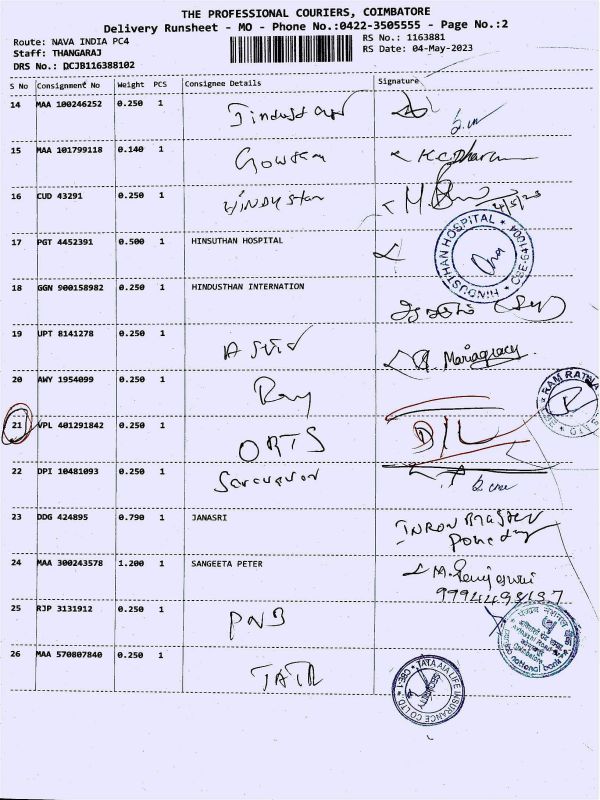 THE PROFESSIONAL COURIERS, COIMBATORE
Delivery Runsheet - MO - Phone No.:0422-3505555 - Page No.:2
Route: NAVA INDIA PC4
RS No.: 1163881
Staff: THANGARAJ
RS Date: 04-May-2023
DRS No.: DCJB116388102
S No Consignment No Weight PCS Consignee Details Signature
14 MAA 100246252 0.250 1
15 MAA 101799118 0.140 1 Gowtam
16 CUD 43291 0.250 1 HiNDUstan
4/5/23
17 PGT 4452391 0.500 1 HINSUTHAN HOSPITAL
HINDUSTHAN HOSPITAL * CBE-641004 *
18 GGN 900158982 0.250 1 HINDUSTHAN INTERNATION
19 UPT 8141278 0.250 1
Mariagracy
20 AWY 1954099 0.250 1 Ray
RAM RATNA
21 VPL 401291842 0.250 1 ORTS D/L
22 DPI 10481093 0.250 1
23 DDG 424895 0.790 1 JANASRI
24 MAA 300243578 1.200 1 SANGEETA PETER
25 RJP 3131912 0.250 1 PNB
punjab national bank
26 MAA 570807840 0.250 1 TATA
TATA AIA LIFE INSURANCE CO LTD. * CBE-1 *
SECURITY